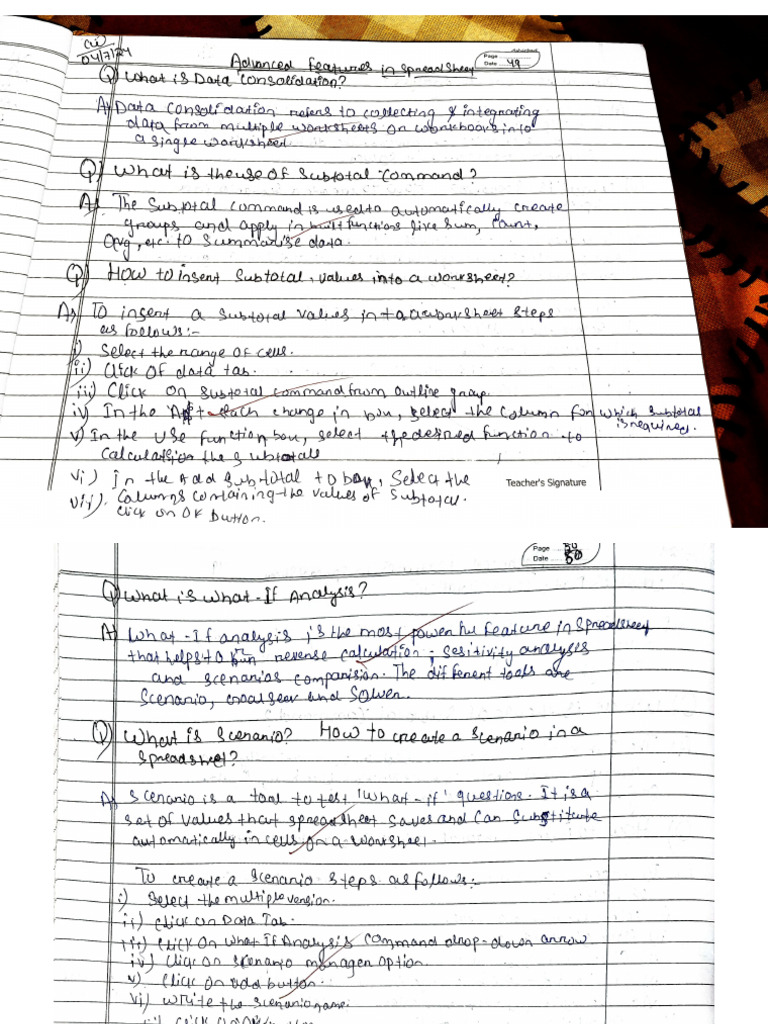 (ii)
04/7/24
Page 49
Date
Advanced Features in Spreadsheet
Q) What is Data Consolidation?
A) Data Consolidation refers to collecting & integrating
data from multiple worksheets or workbooks into
a single worksheet.
Q) What is the use of Subtotal Command?
A) The Subtotal command is used to automatically create
groups and apply in built functions like sum, Count,
Avg, etc. to summarise data.
Q) How to insert Subtotal values into a worksheet?
A) To insert a subtotal values in to a worksheet steps
as follows:-
i) Select the range of cells.
ii) Click of data tab.
iii) Click on subtotal command from outline group.
iv) In the At each change in box, select the column for which subtotal
is required.
v) In the Use function box, select the desired function to
the subtotals
vi) In the Add subtotal to box, Select the
Columns containing the values of Subtotal.
vii) Click on OK button.
Teacher's Signature
Page 50
Date
Q) What is What-If Analysis?
A) What-If analysis is the most powerful feature in spreadsheet
that helps to run reverse calculation, sesitivity analysis
and scenarios comparision. The different tools are
Scenario, Goal seek and Solver.
Q) What is Scenario? How to create a scenario in a
spreadsheet?
A) Scenario is a tool to test 'what-if' questions. It is a
set of values that spreadsheet saves and can substitute
automatically in cells on a worksheet.
To create a scenario steps as follows:-
i) Select the multiple version.
ii) Click on Data Tab.
iii) Click on What If Analysis command drop-down arrow
iv) Click on scenario manager option.
v) Click on add button.
vi) Write the scenario name.